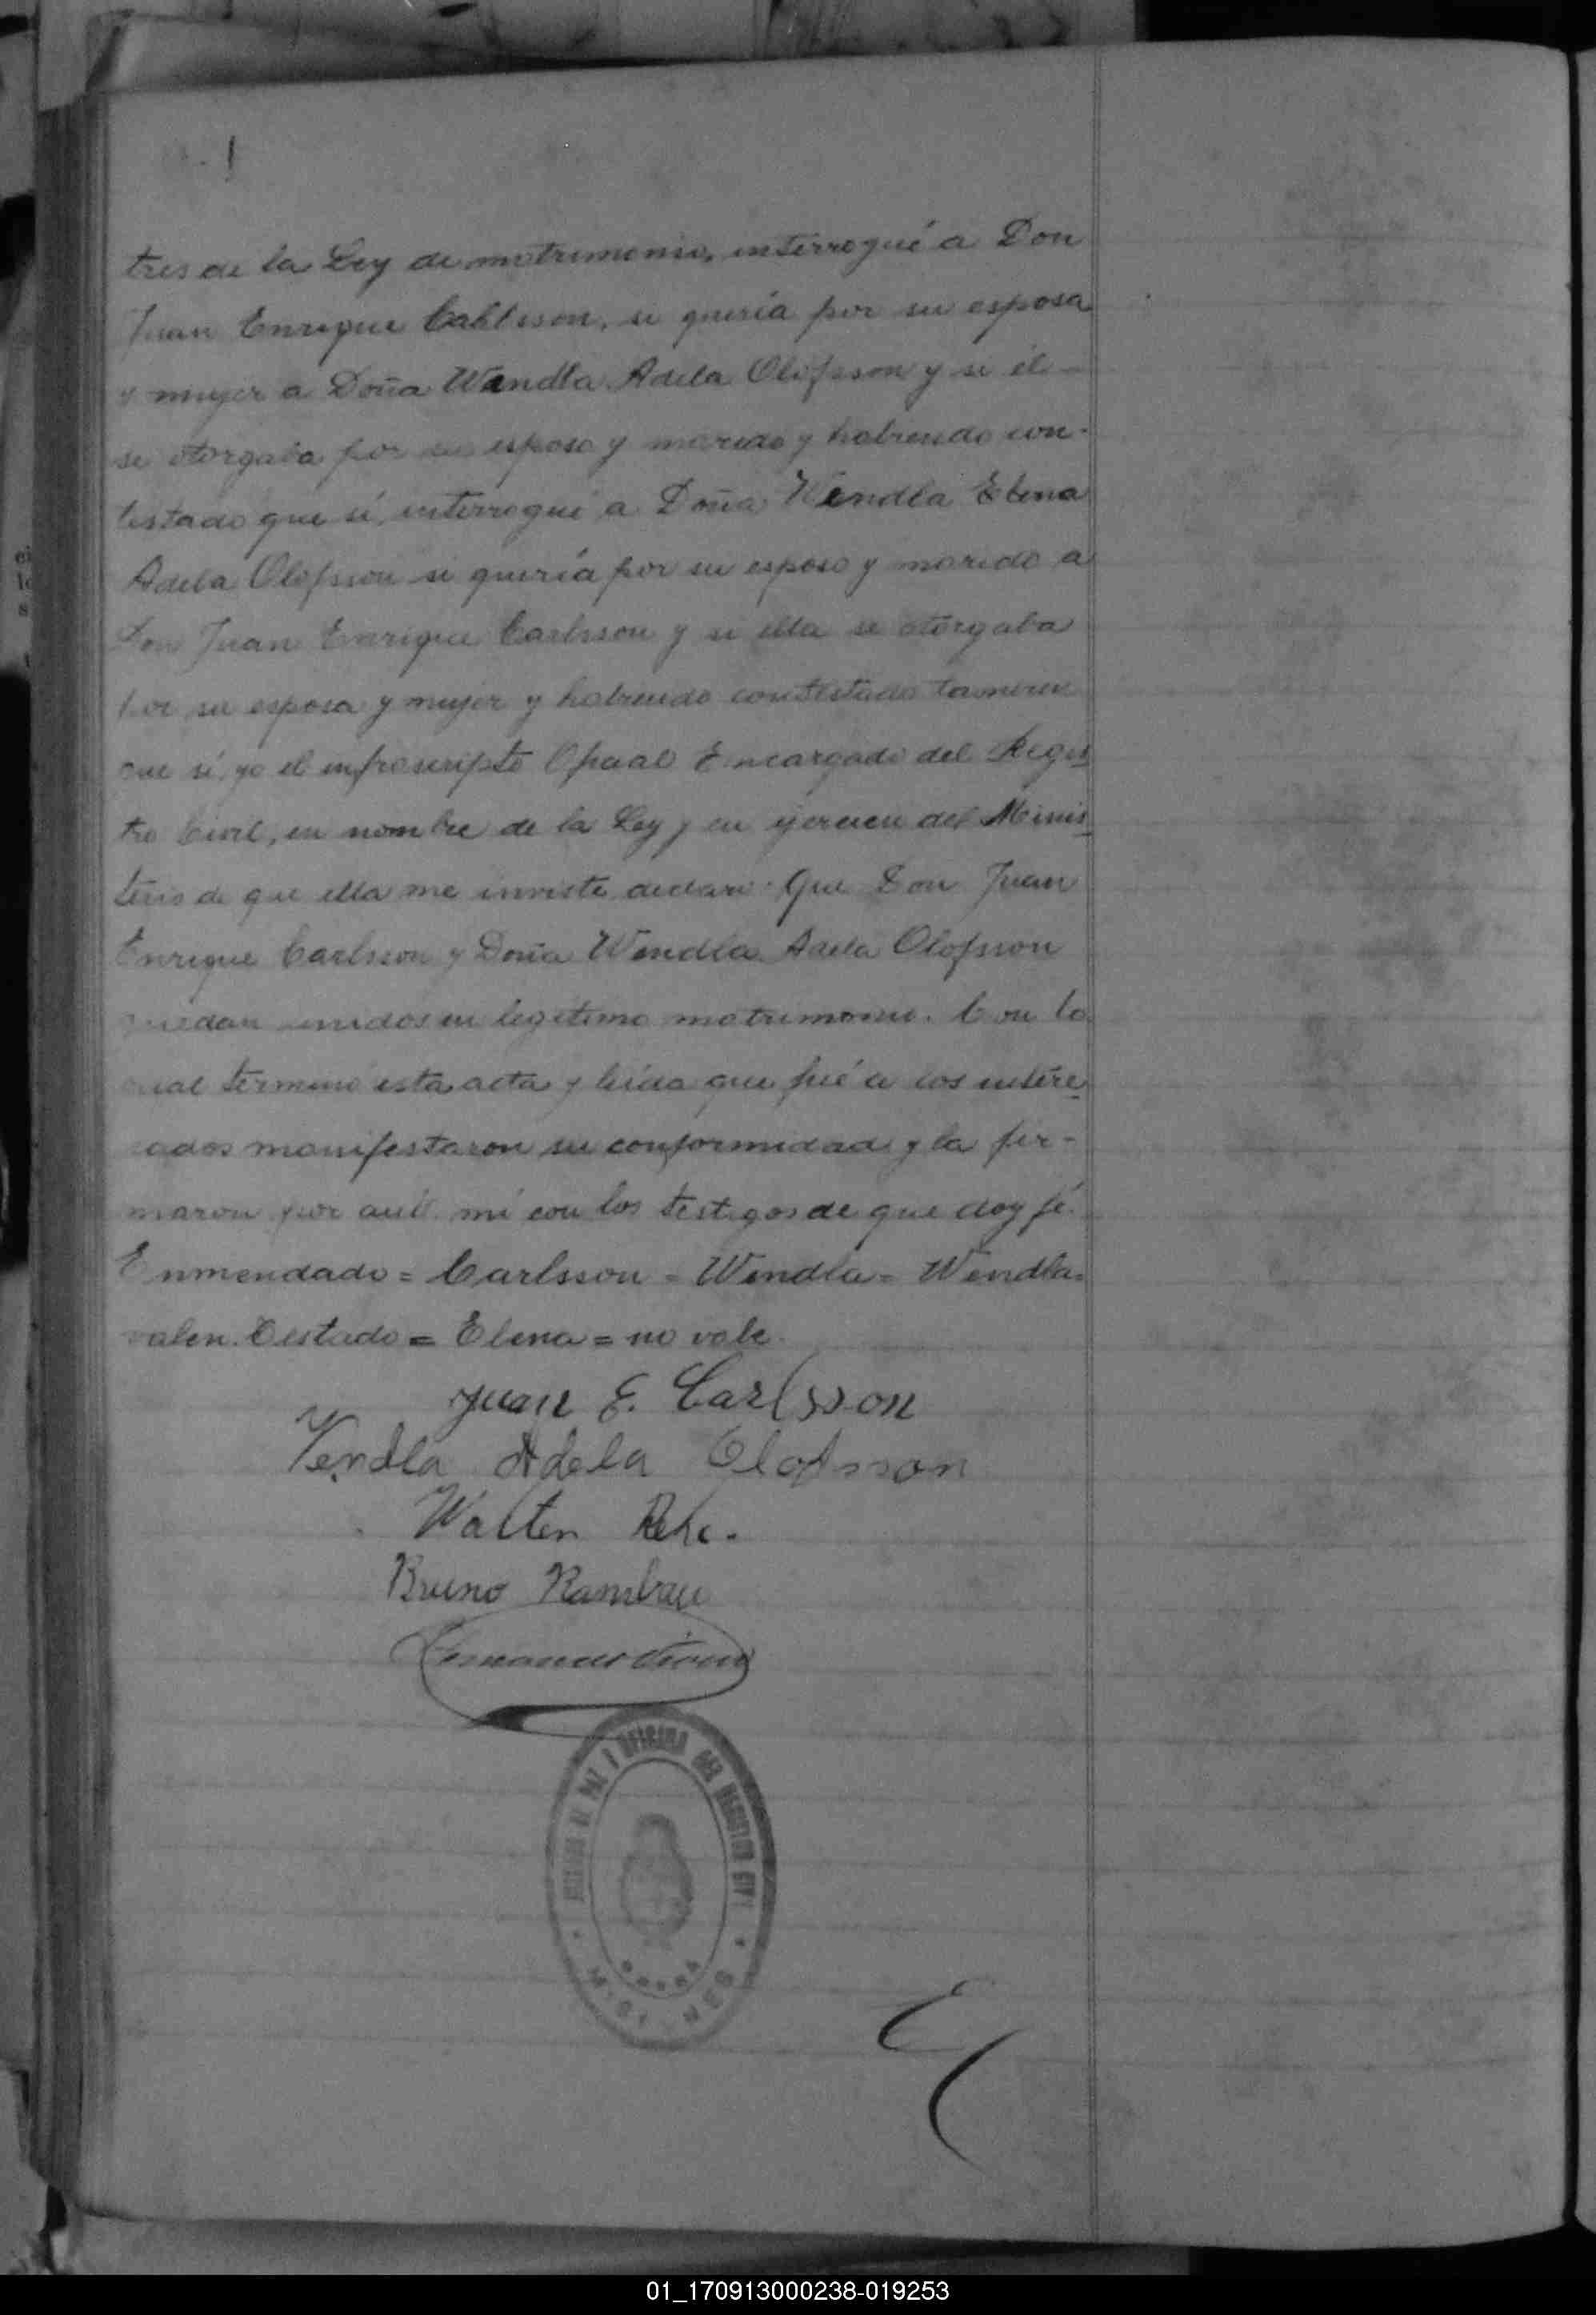 tres de la Ley de matrimonio, interrogué a Don
Juan Enrique Cahlsson, si quería por su esposa
y mujer a Doña Wandla Adela Olofsson y si él
se otorgaba por su esposo y marido y habiendo con-
testado que sí, interrogué a Doña Wendla Elena
Adela Olofsson si quería por su esposo y marido a
Don Juan Enrique Carlsson y si ella se otorgaba
por su esposa y mujer y habiendo contestado tambien
que sí, yo el infrascripto Oficial Encargado del Regis
tro Civil, en nombre de la Ley y en ejercicio del Minis
terio de que ella me inviste declaro: Que Don Juan
Enrique Carlsson y Doña Wendla Adela Olofsson
quedan unidos en legitimo matrimonio. Con lo
cual terminó esta acta y leída que fué a los intere
sados manifestaron su conformidad y la fir-
maron por ante mi con los testigos de que doy fé.
Enmendado = Carlsson = Wendla = Wendla =
valen. Testado = Elena = no vale.
Juan E. Carlsson
Vendla Adela Olofsson
Walter
Bruno Rambau
JUZGADO DE PAZ I OFICINA DEL REGISTRO CIVIL
01_170913000238-019253